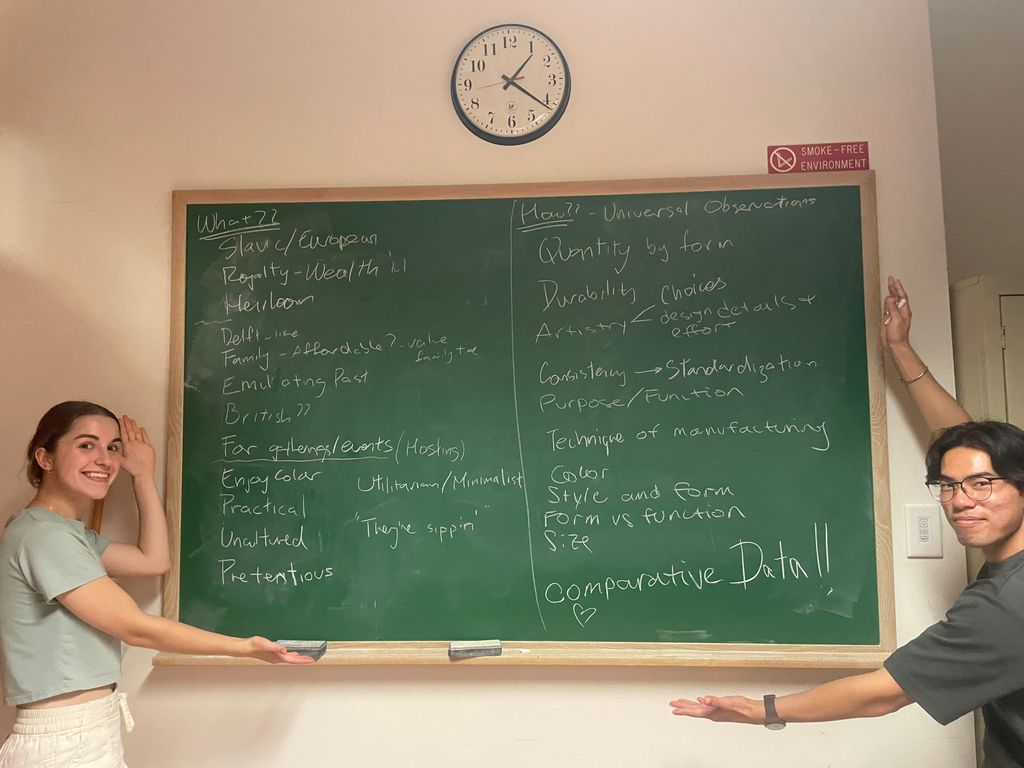 12
1
2
3
4
5
6
7
8
9
10
11
SMOKE-FREE
ENVIRONMENT
What??
Slavic/European
Royalty-Wealth
Heirloom
Delft-like
Family - Affordable? - value
family tree
Emulating Past
British??
For gatherings/events (Hosting)
Enjoy color
Utilitarian/Minimalist
Practical
"They're sippin'"
Uncultured
Pretentious
How?? - Universal Observations
Quantity by form
Durability Choices
Artistry < design details +
effort
Consistency → Standardization
Purpose/Function
Technique of manufacturing
Color
Style and form
Form vs function
Size
Comparative Data!!